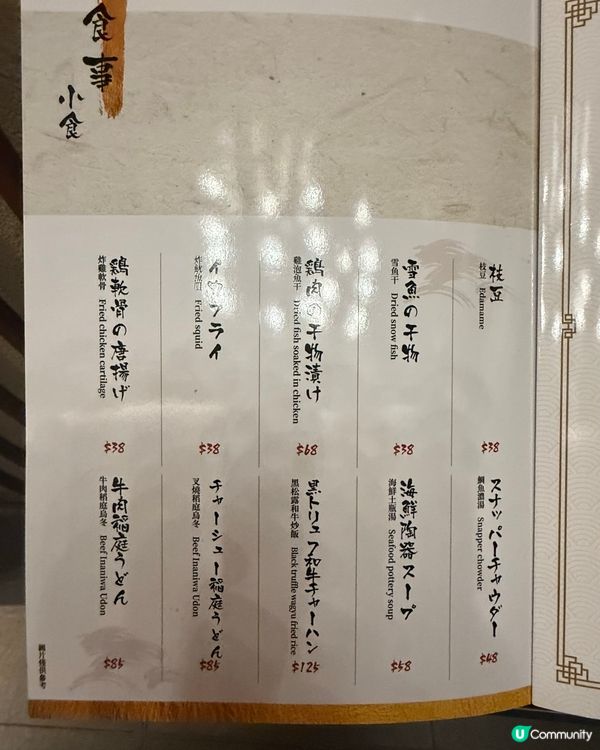 食事
小食
枝豆
枝豆 Edamame
$38
雪魚の干物
雪魚干 Dried snow fish
$38
鶏肉の干物漬け
雞泡魚干 Dried fish soaked in chicken
$68
イカフライ
Fried squid
$38
鶏軟骨の唐揚げ
炸雞軟骨 Fried chicken cartilage
$38
スナッパーチャウダー
鯛魚濃湯 Snapper chowder
$48
海鮮陶器スープ
海鮮土瓶湯 Seafood pottery soup
$58
黒トリュフ和牛チャーハン
黑松露和牛炒飯 Black truffle wagyu fried rice
$125
チャーシュー稲庭うどん
叉燒稻庭烏冬 Beef Inaniwa Udon
$85
牛肉稲庭うどん
牛肉稻庭烏冬 Beef Inaniwa Udon
$85
圖片僅供參考
U Community